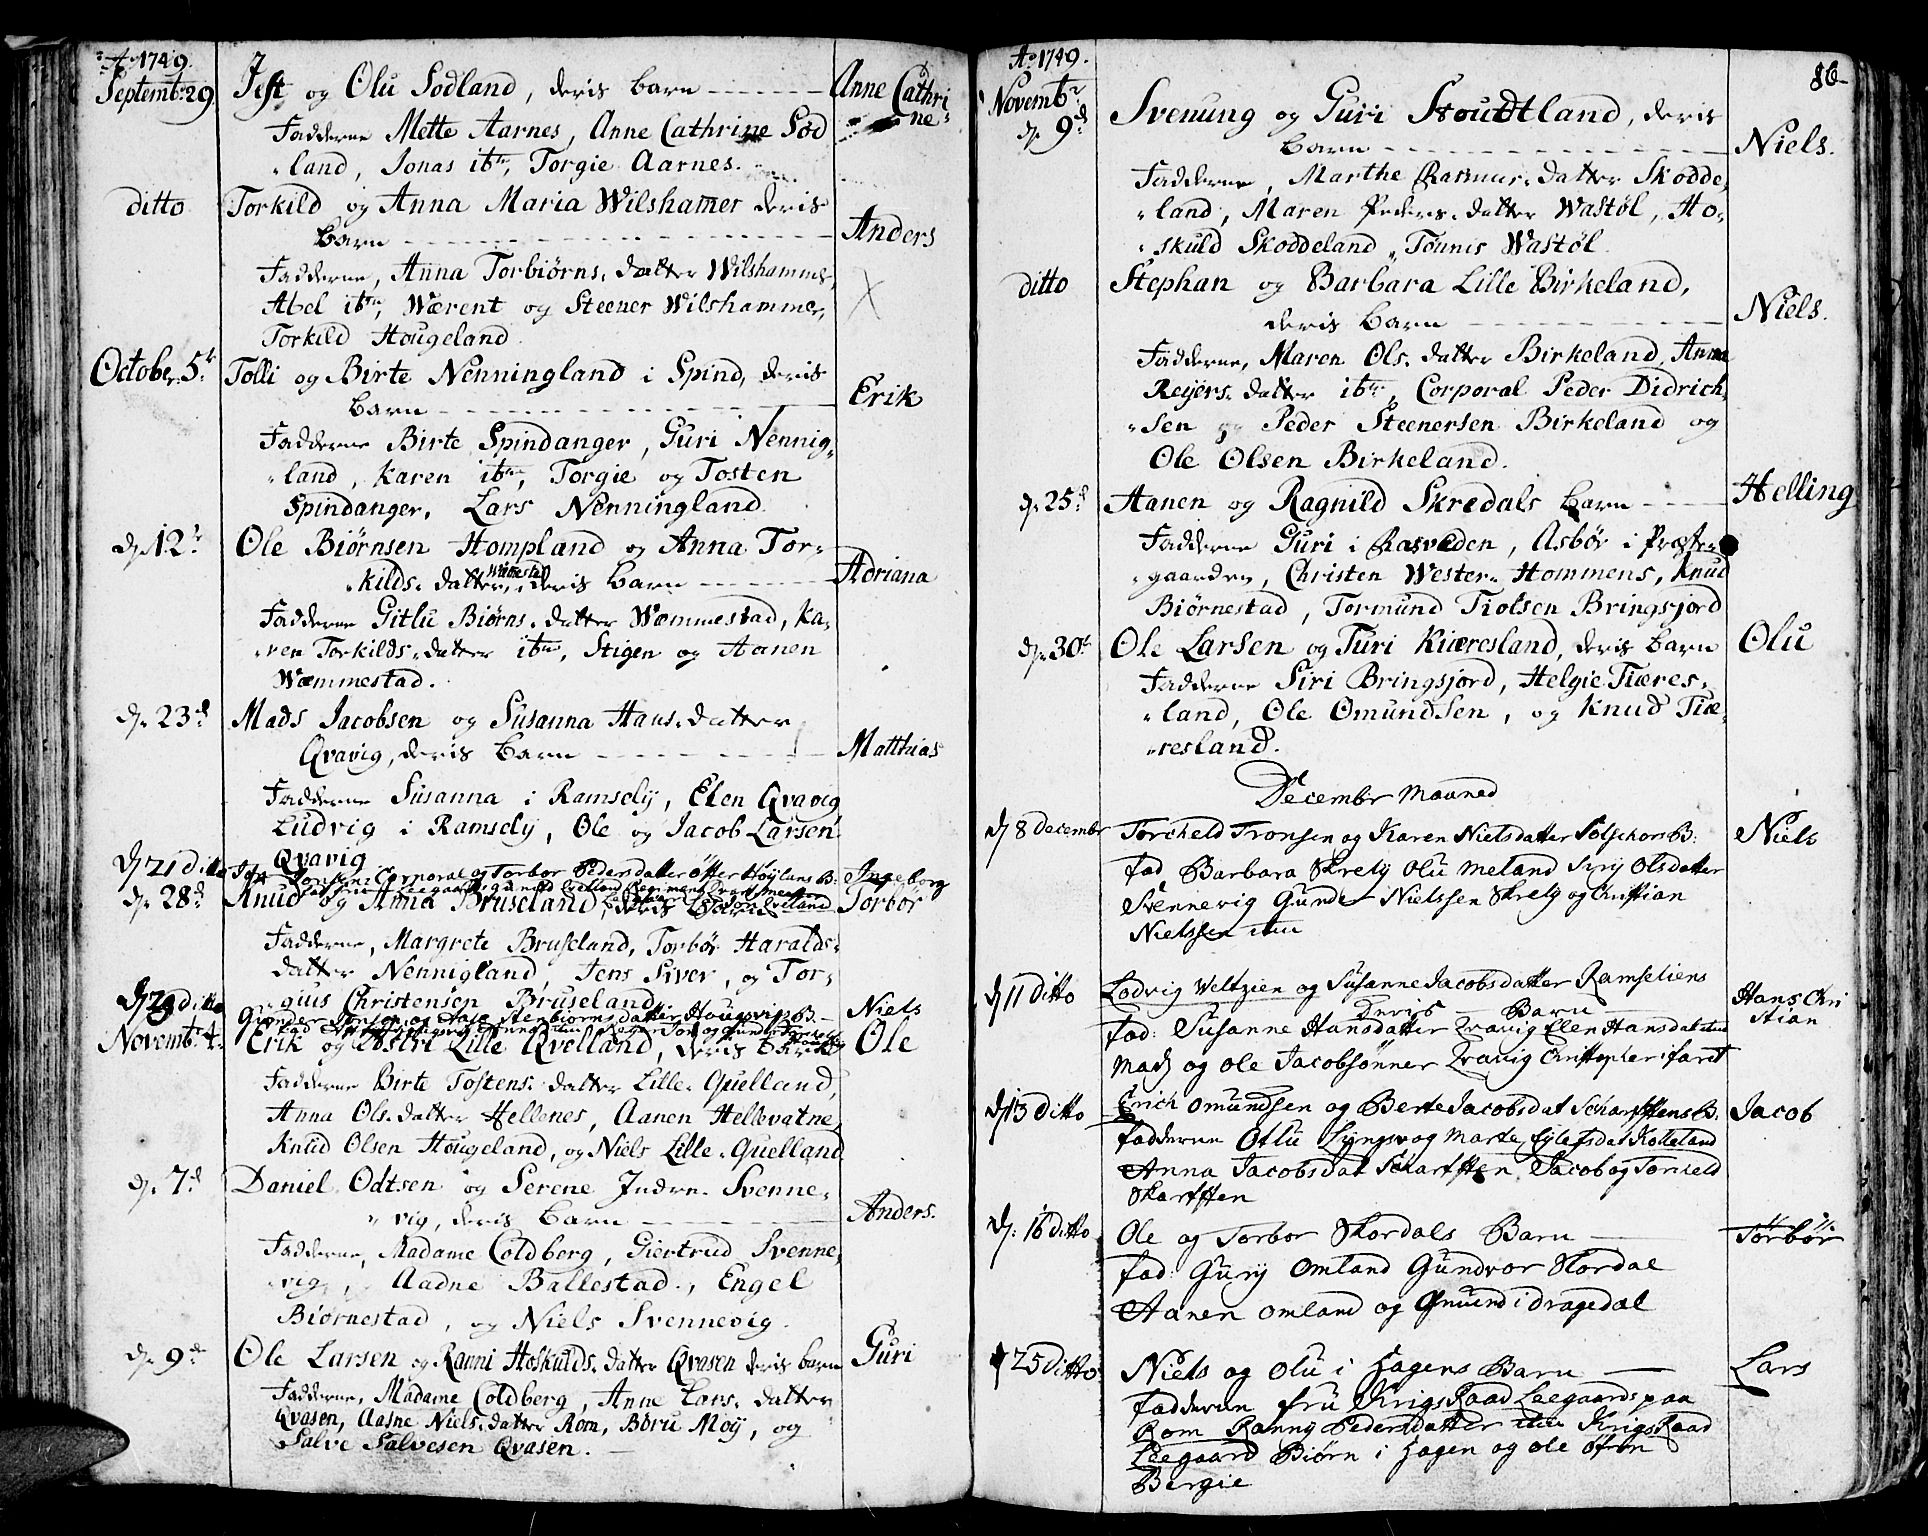 Ao 1749.
Septembr 29 Jest og Olu Sodland, deris barn Anne Cathri
ne
Fadderne Mette Aarnes, Anne Cathrine Sod
land, Jonas itm, Torgie Aarnes.
ditto Torkild og Anna Maria Wilshamer deris
barn Anders
Fadderne, Anna Torbiørns. datter Wilshammer,
Abel itm, Wærent og Steener Wilshammer,
Torkild Hougeland.
October. 5t Tolli og Birte Nenningland i Spind, deris
barn Erik
Fadderne Birte Spindanger, Guri Nennig,
land, Karen itm, Torgie og Tosten
Spindanger, Lars Nenningland.
d. 12t Ole Biørnsen Hompland og Anna Tor-
kilds. datter, deris barn Adriana
Fadderne Gitlu Biørns. datter Wæmmestad, Ka,
ren Torkilds. datter itm, Stigen og Aanen
Wæmmestad.
d. 23d Mads Jacobsen og Susanna Hans. datter
Qvavig, deris barn Matthias
Fadderne Susanna i Ramsely, Elen Qvavig
Ludvig i Ramsely, Ole og Jacob Larsen
Qvavig
d 21 ditto Corporal og Torbor Pedersdatter B: Ingeborg
d. 28d Knud og Anna Bruseland, deris barn Torbor
Fadderne, Margrete Bruseland, Torbør Haralds-
datter Nennigland, Jens Siver, og Tor,
gius Christensen Bruseland.
d 29 ditto Gunder Jonsen og Stenbiørns datter Hougvig B. Niels
Novembr 4. Erik og Lille Qvelland, deris barn Ole
Fadderne Birte Tostens. datter Lille. Quelland,
Anna Ols. datter Hellenes, Aanen Hellevatne,
Knud Olsen Hougeland, og Niels Lille. Quelland
d. 7d Daniel Odtsen og Serene Indre. Svenne,
vig, deris barn Anders.
Fadderne, Madame Coldberg, Giertrud Svenne,
vig, Aadne Ballestad, Engel
Biørnestad, og Niels Svennevig.
d. 9de Ole Larsen og Ranni Hoskulds. datter Qvasen deris barn Guri
Fadderne, Madame Coldberg, Anne Lars. datter
Qvasen, Aasne Niels. datter Rom, Boru Moy, og
Salve Salvesen Qvasen.
Ao 1749. 86
Novembr
d. 9d Svenung og Guri Stoudtland, deris
barn Niels.
Fadderne, Marthe Rasmus. datter Skodde,
land, Maren Peders. datter Wastøl, Ho-
skuld Skoddeland, Tønnis Wastøl.
ditto Stephan og Barbara Lille Birkeland,
deris barn Niels.
Fadderne, Maren Ols. datter Birkeland, Anna
Reyers. datter itm, Corporal Peder Didrich,
sen og Peder Steenersen Birkeland og
Ole Olsen Birkeland.
d. 25d Aanen og Ragnild Skredals barn Helling
Fadderne Guri i Rasveden, Asbør i Præste-
gaarden, Christen Wester. Hommens, Knud
Biørnestad, Tormund Tiolsen Bringsjord
d. 30t Ole Larsen og Turi Kiæresland, deris barn Olu
Fadderne Siri Bringsjord, Helgie Tiæres,
land, Ole Omundsen, og Knud Tiæ-
resland.
December Maaned
d 8 december Torcheld Tronsen og Karen Nielsdatter B: Niels
fad Barbara Skrely Olu Meland Siry Olsdatter
Svennevig Gunder Nielssen Skrely og Christian
Nielssen itm
d 11 ditto Lodvig Weltzien og Susanne Jacobsdatter Ramseliens
Deris Barn Hans Chri
stian
fad: Susanne Hansdatter Qvavig Elen Hansdat itm
Mads og Ole Jacobsønner Qvavig Christopher i faret
d 13 ditto Erich Omundsen og Berte Jacobsdat Scharpftens B. Jacob
fadderne Ollu Lyngsvog Marte Eylefsdat Kolleland
Anna Jacobsdat Scharften Jacob og Torkeld
Skarften
d. 16 ditto Ole og Torbor Skordals Barn Torbør
fad: Gury Omland Gundvor Skordal
Aanen Omland og Gmund i dragedal
25 ditto Niels og Olu i Hagens Barn Lars
fadderne fru Krigs Raad Leegaards paa
Rom Ranny Pedersdatter itm Krigs Raad
Leegaard Biørn i Hagen og Ole Øfren
Bergie